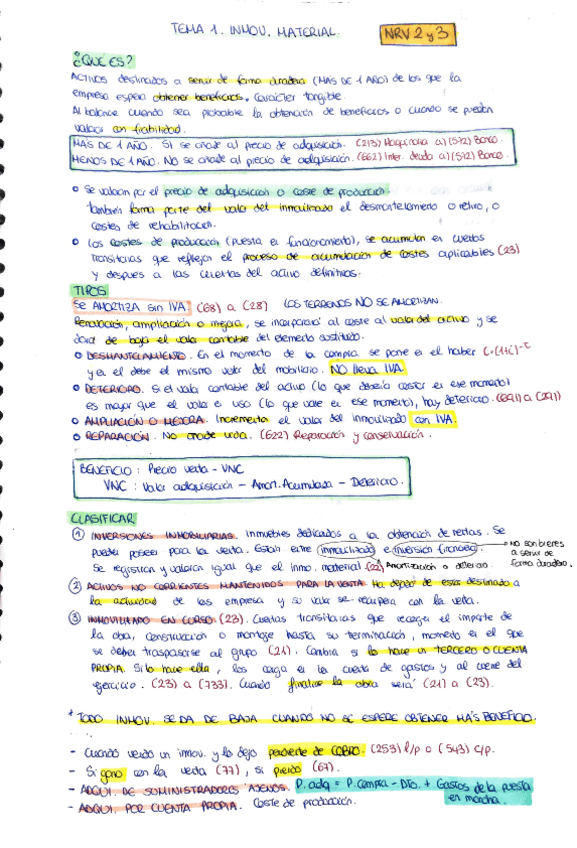 TEMA 1. INMOV. MATERIAL.
NRV 2 y 3
¿QUE ES?
ACTIVOS destinados a servir de forma duradera (MAS DE 1 AÑO) de los que la
empresa espera obtener beneficios. Carácter tangible.
Al balance cuando sea probable la obtención de beneficios o cuando se puedan
valorar con fiabilidad.
MÁS DE 1 AÑO. SI se añade al precio de adquisición. (213) Maquinaria a) (572) Banco.
MENOS DE 1 AÑO. NO se añade al precio de adquisición. (662) Inter. deuda a) (572) Banco.
o Se valoran por el precio de adquisición o coste de producción
también forma parte del valor del inmovilizado el desmantelamiento o retiro, o
costes de rehabilitación.
o Los costes de producción (puesta en funcionamiento), se acumulan en cuentas
transitorias que reflejen el proceso de acumulación de costes aplicables (23)
y después a las cuentas del activo definitivas.
TIPOS
SE AMORTIZA sin IVA. (68) a (28) LOS TERRENOS NO SE AMORTIZAN.
Renovación, ampliación o mejora, se incorporará al coste al valor del activo y se
dará de baja el valor contable del elemento sustituido.
o DESMANTELAMIENTO. En el momento de la compra se pone en el haber C·(1+i)^-t
y en el debe el mismo valor del mobiliario. NO lleva IVA.
o DETERIORO. Si el valor contable del activo (lo que debería costar en ese momento)
es mayor que el valor en uso (lo que vale en ese momento), hay deterioro. (691) a (291)
o AMPLIACIÓN O MEJORA. Incrementa el valor del inmovilizado con IVA.
o REPARACIÓN. No añade vida. (622) Reparación y conservación.
BENEFICIO: Precio venta - VNC
VNC: Valor adquisición - Amort. Acumulada - Deterioro.
CLASIFICAR
① INVERSIONES INMOBILIARIAS. Inmuebles dedicados a la obtención de rentas. Se
pueden poseer para la venta. Están entre inmovilizado e inversión financiera.
→ NO son bienes
a servir de
forma duradera.
Se registran y valoran igual que el inmo. material (22) Amortización o deterioro.
② ACTIVOS NO CORRIENTES MANTENIDOS PARA LA VENTA. Ha dejado de estar destinado a
la actividad de la empresa y su valor se recupera con la venta.
③ INMOVILIZADO EN CURSO. (23). Cuentas transitorias que recogen el importe de
la obra, construcción o montaje hasta su terminación, momento en el que
se deben traspasarse al grupo (21). Cambia si lo hace un TERCERO O CUENTA
PROPIA. Si lo hace ella, los carga en la cuenta de gastos y al cierre del
ejercicio. (23) a (733). Cuando finalice la obra será (21) a (23).
* TODO INMOV. SE DA DE BAJA CUANDO NO SE ESPERE OBTENER MÁS BENEFICIO.
- Cuando vendo un inmov. y lo dejo pendiente de COBRO. (253) l/p o (543) c/p.
- Si gano con la venta (77), si pierdo (67).
- ADQUI. DE SUMINISTRADORES AJENOS. P. adq = P. compra - DTO. + Gastos de la puesta
en marcha.
- ADQUI. POR CUENTA PROPIA. Coste de producción.